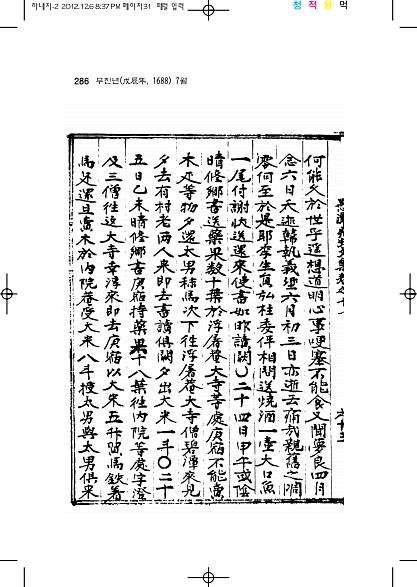 하내지-2 2012.12.6 8:37 PM 페이지31
청 적 황 먹
286 무진년(戊辰年, 1688) 7월
何能久於世乎遥想道明心事哽塞不能食又聞要良四月
念六日夭逝韓執義 六月初三日亦逝去痛哉親舊之凋
零何至於是耶李生眞弘柱委伻相問送燒酒一壺大口魚
一尾付謝快送還來使書如昨讀關〇二十四日甲午或陰
晴修鄕書送藥果數十葉於浮屠菴大寺等處庚 不能
木疋等物夕還太男秣馬次下往浮屠菴大寺僧碧渾來見
夕去有村老兩人來即去書讀俱闕夕出大米一斗〇二十
五日乙未晴修鄕書庚 持藥果十八葉往內院等處宇澄
及三僧往近大寺幸淳來即去庚 以大米五升貿馬鐵着
馬足還且賣木於內院菴受大米八斗使太男與太男俱來